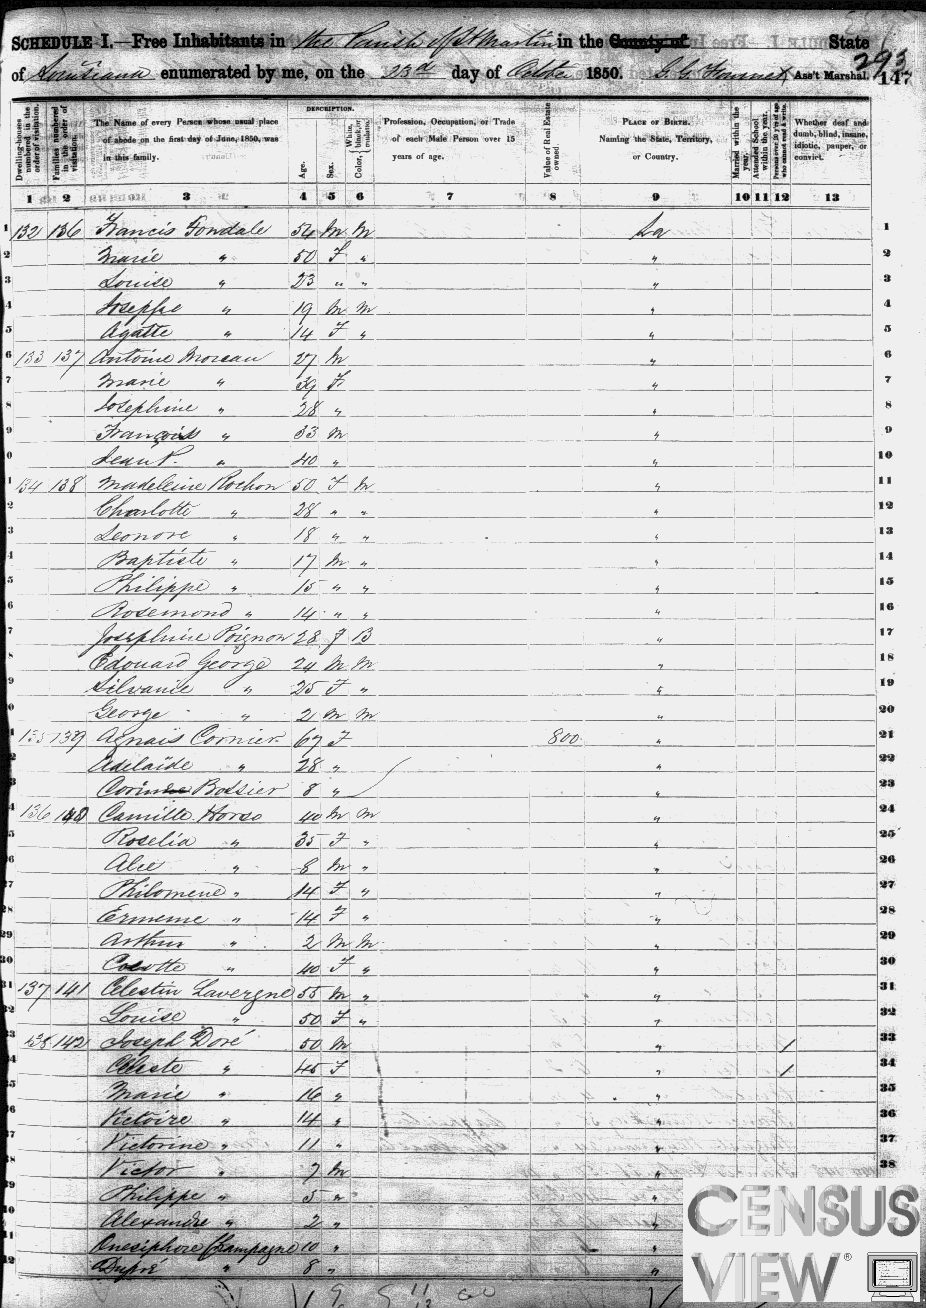 SCHEDULE I.—Free Inhabitants in the Parish of St Martin in the County of State
of Louisiana enumerated by me, on the 23d day of Octobr 1850. Ass't Marshal.
293
147
Dwelling-houses numbered in the order of visitation.
Families numbered in the order of visitation.
The Name of every Person whose usual place of abode on the first day of June, 1850, was in this family.
DESCRIPTION.
Age.
Sex.
White, black, or mulatto. Color,
Profession, Occupation, or Trade of each Male Person over 15 years of age.
Value of Real Estate owned
PLACE OF BIRTH. Naming the State, Territory, or Country.
Married within the year.
Attended School within the year.
Persons over 20 y'rs of age who cannot read & write.
Whether deaf and dumb, blind, insane, idiotic, pauper, or convict.
1 2 3 4 5 6 7 8 9 10 11 12 13
1 132 136 Francis Gondale 54 M M La 1
2 Marie " 50 F " " 2
3 Louise " 23 " " " 3
4 Josephe " 19 M M " 4
5 Agatte " 14 F " " 5
6 133 137 Antoine Moreau 27 M " 6
7 Marie " 39 F " 7
8 Josephine " 28 " " 8
9 François " 33 M " 9
0 Jean P. " 40 " " 10
1 134 138 Madeleine Rochon 50 F M " 11
2 Charlotte " 28 " " " 12
3 Leonore " 18 " " " 13
4 Baptiste " 17 M " " 14
5 Philippe " 15 " " " 15
6 Rosemond " 14 " " " 16
7 Josephine Poignon 28 F B " 17
8 Edouard George 24 M M " 18
9 Silvanie " 25 F " " 19
0 George " 2 M M " 20
1 135 139 Agnais Cornier 67 F 800 " 21
2 Adelaïde " 28 " " 22
3 Corinne Bossier 8 " " 23
4 136 140 Camille Horso 40 M M " 24
5 Roselia " 35 F " " 25
6 Alce " 8 M " " 26
27 Philomene " 14 F " " 27
28 Ermeme " 14 F " " 28
29 Arthur " 2 M M " 29
30 Cocotte " 40 F " " 30
31 137 141 Celestin Lavergne 55 M " " 31
32 Louise " 50 F " " 32
33 138 142 Joseph Doré 50 M " / 33
34 Celeste " 45 F " / 34
35 Marie " 16 " " 35
36 Victoire " 14 " " 36
37 Victorine " 11 " " 37
38 Victor " 7 M " 38
39 Philippe " 5 " "
10 Alexandre " 2 " "
11 Onesiphore Champagne 10 " "
12 Dupré " 8 " "
CENSUS
VIEW ®